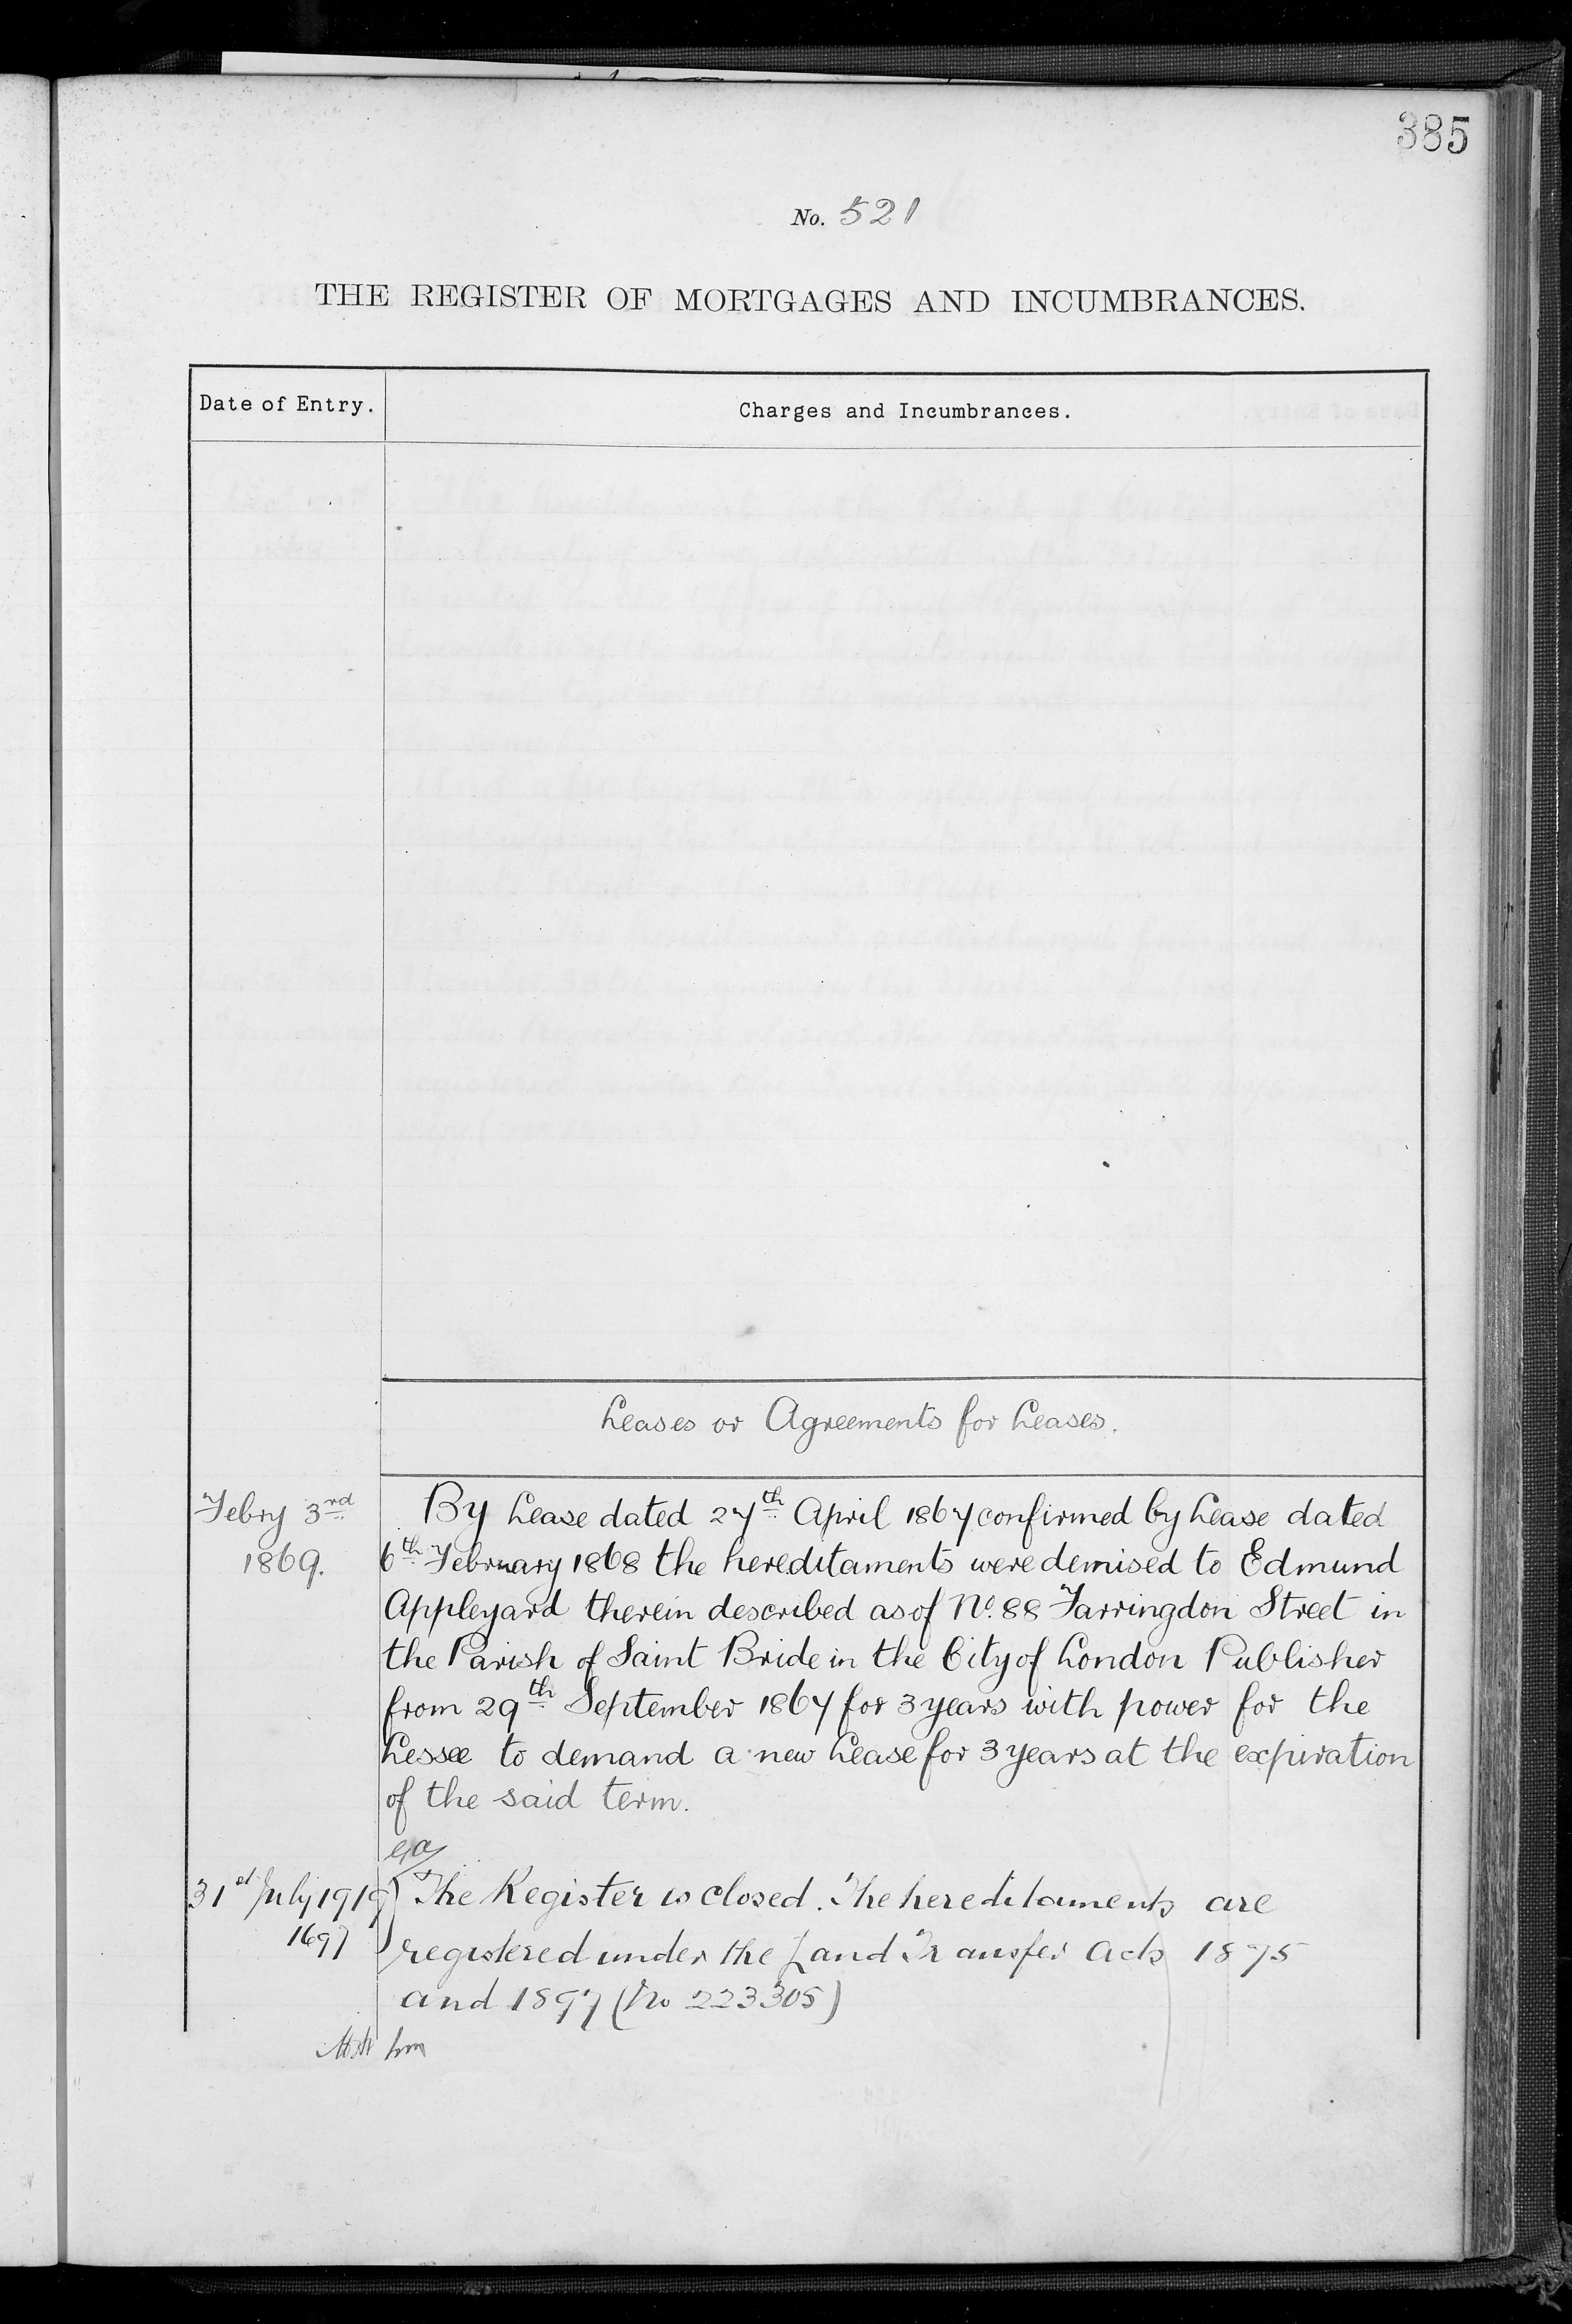 385
No. 521
THE REGISTER OF MORTGAGES AND INCUMBRANCES.
Date of Entry.
Charges and Incumbrances.
Leases or Agreements for Leases.
Febry 3rd
1869.
By Lease dated 27th April 1867 confirmed by Lease dated
6th February 1868 the hereditaments were demised to Edmund
Appleyard therein described as of No. 88 Farringdon Street in
the Parish of Saint Bride in the City of London Publisher
from 29th September 1867 for 3 years with power for the
Lessee to demand a new Lease for 3 years at the expiration
of the said term.
31st July 1919
1697
The Register is closed. The hereditaments are
registered under the Land Transfer Acts 1875
and 1897 (No 223305)